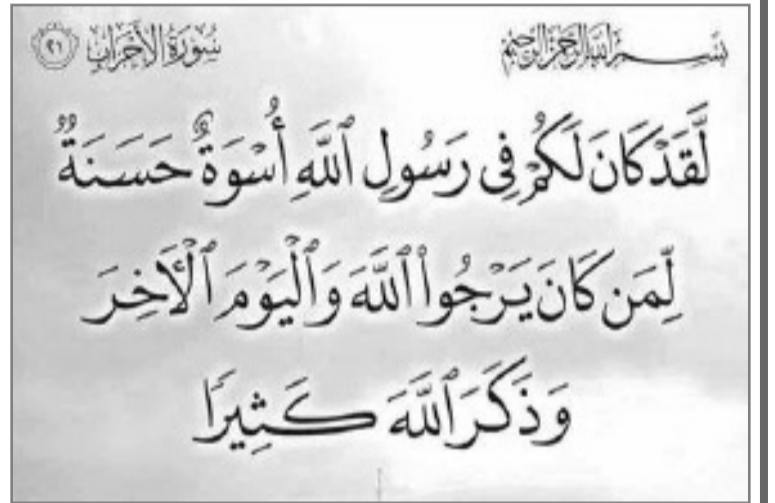 بسم الله الرحمن الرحيم
سورة الأحزاب ٢١
لَّقَدْ كَانَ لَكُمْ فِى رَسُولِ ٱللَّهِ أُسْوَةٌ حَسَنَةٌ
لِّمَن كَانَ يَرْجُوا۟ ٱللَّهَ وَٱلْيَوْمَ ٱلْأَخِرَ
وَذَكَرَ ٱللَّهَ كَثِيرًا